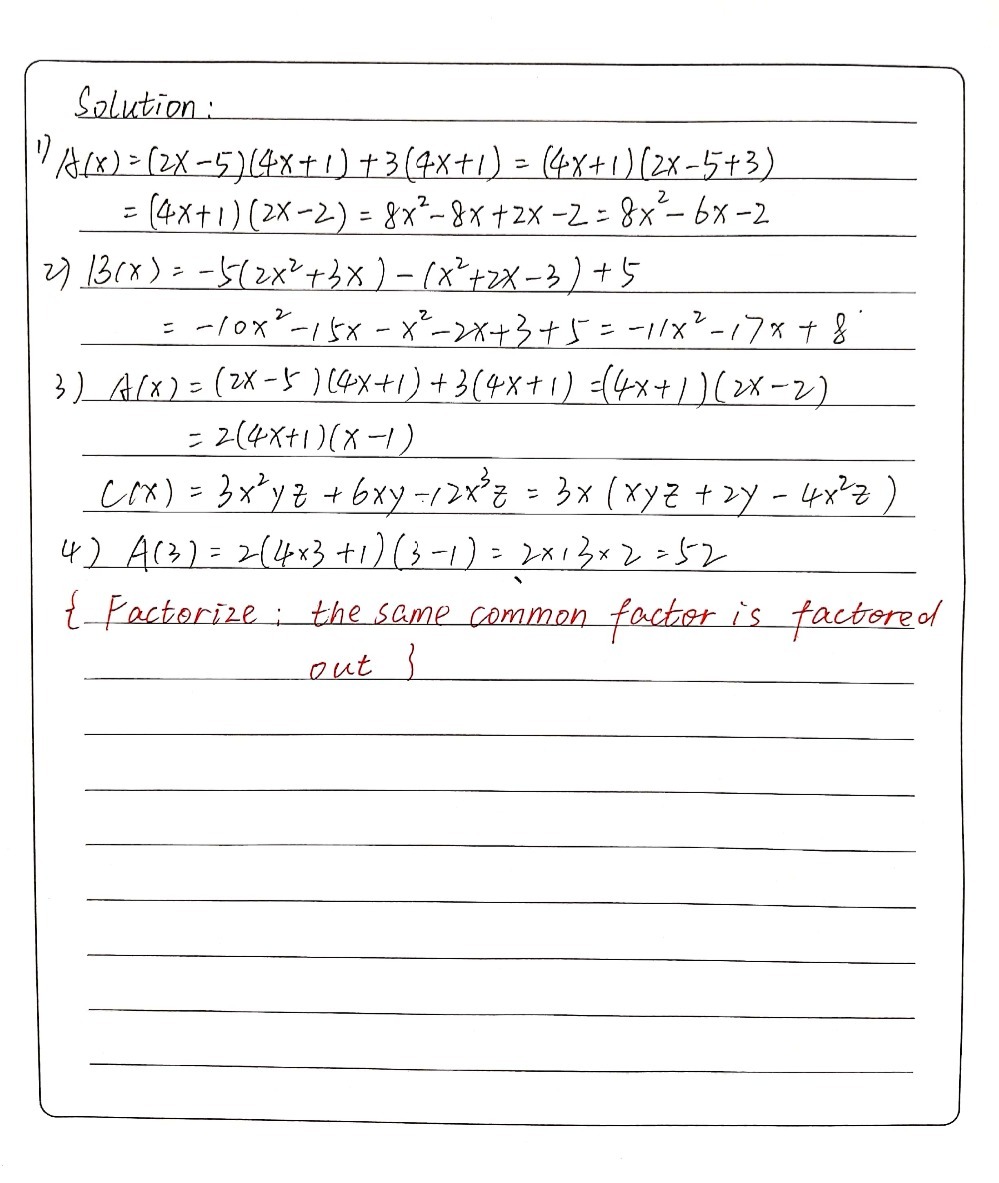 Solution:
1) A(x)=(2x-5)(4x+1)+3(4x+1)=(4x+1)(2x-5+3)
=(4x+1)(2x-2)=8x²-8x+2x-2=8x²-6x-2
2) B(x)=-5(2x²+3x)-(x²+2x-3)+5
=-10x²-15x-x²-2x+3+5=-11x²-17x+8
3) A(x)=(2x-5)(4x+1)+3(4x+1)=(4x+1)(2x-2)
=2(4x+1)(x-1)
C(x)=3x²yz+6xy-12x³z=3x(xyz+2y-4x²z)
4) A(3)=2(4×3+1)(3-1)=2×13×2=52
{ Factorize: the same common factor is factored
out }